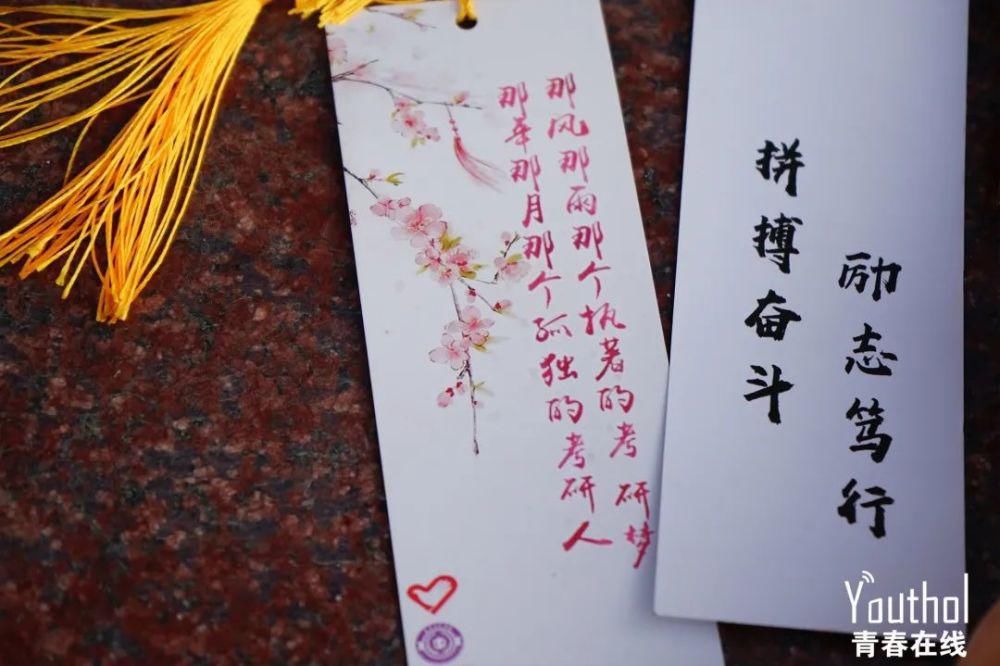 那风那雨那个执著的考研梦
那年那月那个孤独的考研人
励志笃行
拼搏奋斗
Youthol
青春在线